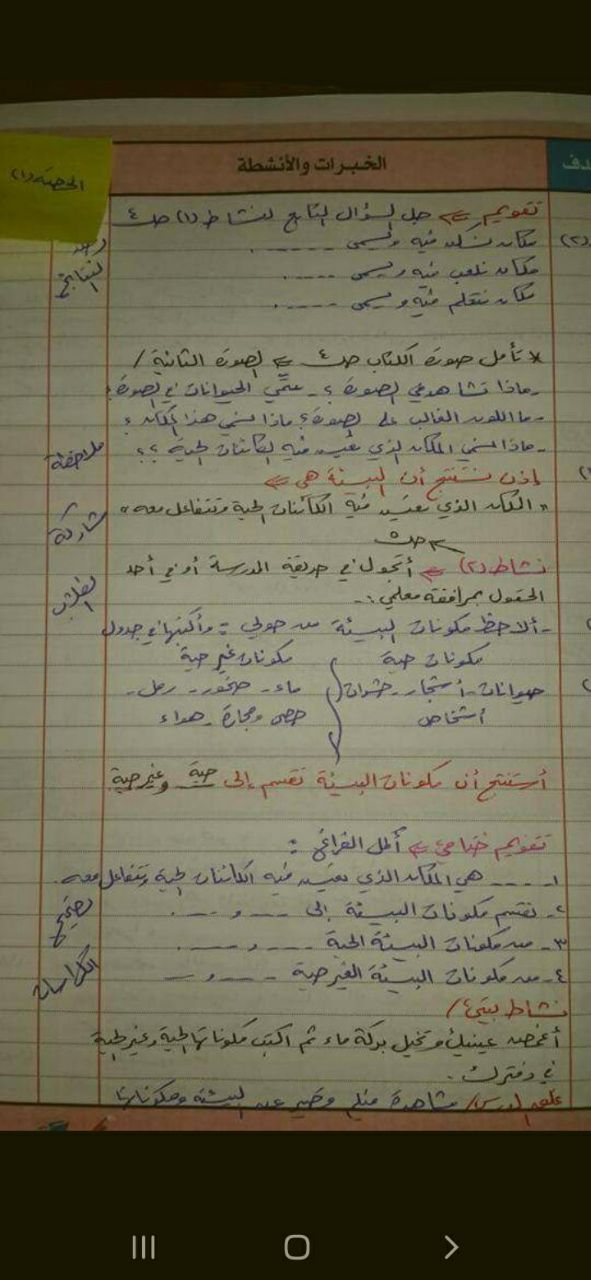 الحصة (١)
دف
الخبرات والأنشطة
تقويم ⇐ حل السؤال التابع لنشاط (١) صـ ٤
(٢)
مكان نسكن فيه ويسمى ......
مكان نلعب فيه ويسمى .....
مكان نتعلم فيه ويسمى .....
رصد
النتائج
* تأمل صورة الكتاب صـ ٤ ⇐ الصورة الثانية /
- ماذا تشاهد في الصورة؟ - سمّي الحيوانات في الصورة؟
- ما اللون الغالب على الصورة؟ ماذا نسمي هذا المكان؟
- ماذا نسمي المكان الذي تعيش فيه الكائنات الحية؟؟
ملاحظة
إذن نستنتج أن البيئة هي ⇐
" المكان الذي تعيش فيه الكائنات الحية وتتفاعل معه "
مشاركة
صـ ٥
نشاط (٢) ⇐ أتجول في حديقة المدرسة أو في أحد
الحقول بمرافقة معلمي :-
الطلاب
- ألاحظ مكونات البيئة من حولي : وأكتبها في جدول
مكونات حية مكونات غير حية
حيوانات - أشجار - حشرات ماء - صخور - رمل -
أشخاص حصى وحجارة - هواء
أستنتج أن مكونات البيئة تقسم إلى حية وغير حية
تقويم ختامي ⇐ أكمل الفراغ :
١- .... هي المكان الذي تعيش فيه الكائنات الحية وتتفاعل معه.
٢- تقسم مكونات البيئة إلى .... و .....
٣- من مكونات البيئة الحية .... و .....
٤- من مكونات البيئة الغير حية .... و ....
تصحيح
الكراسات
نشاط بيتي /
أغمض عينيك وتخيل بركة ماء ثم اكتب مكوناتها الحية وغير الحية
في دفترك.
غلق الدرس / مشاهدة فيلم قصير عن البيئة ومكوناتها